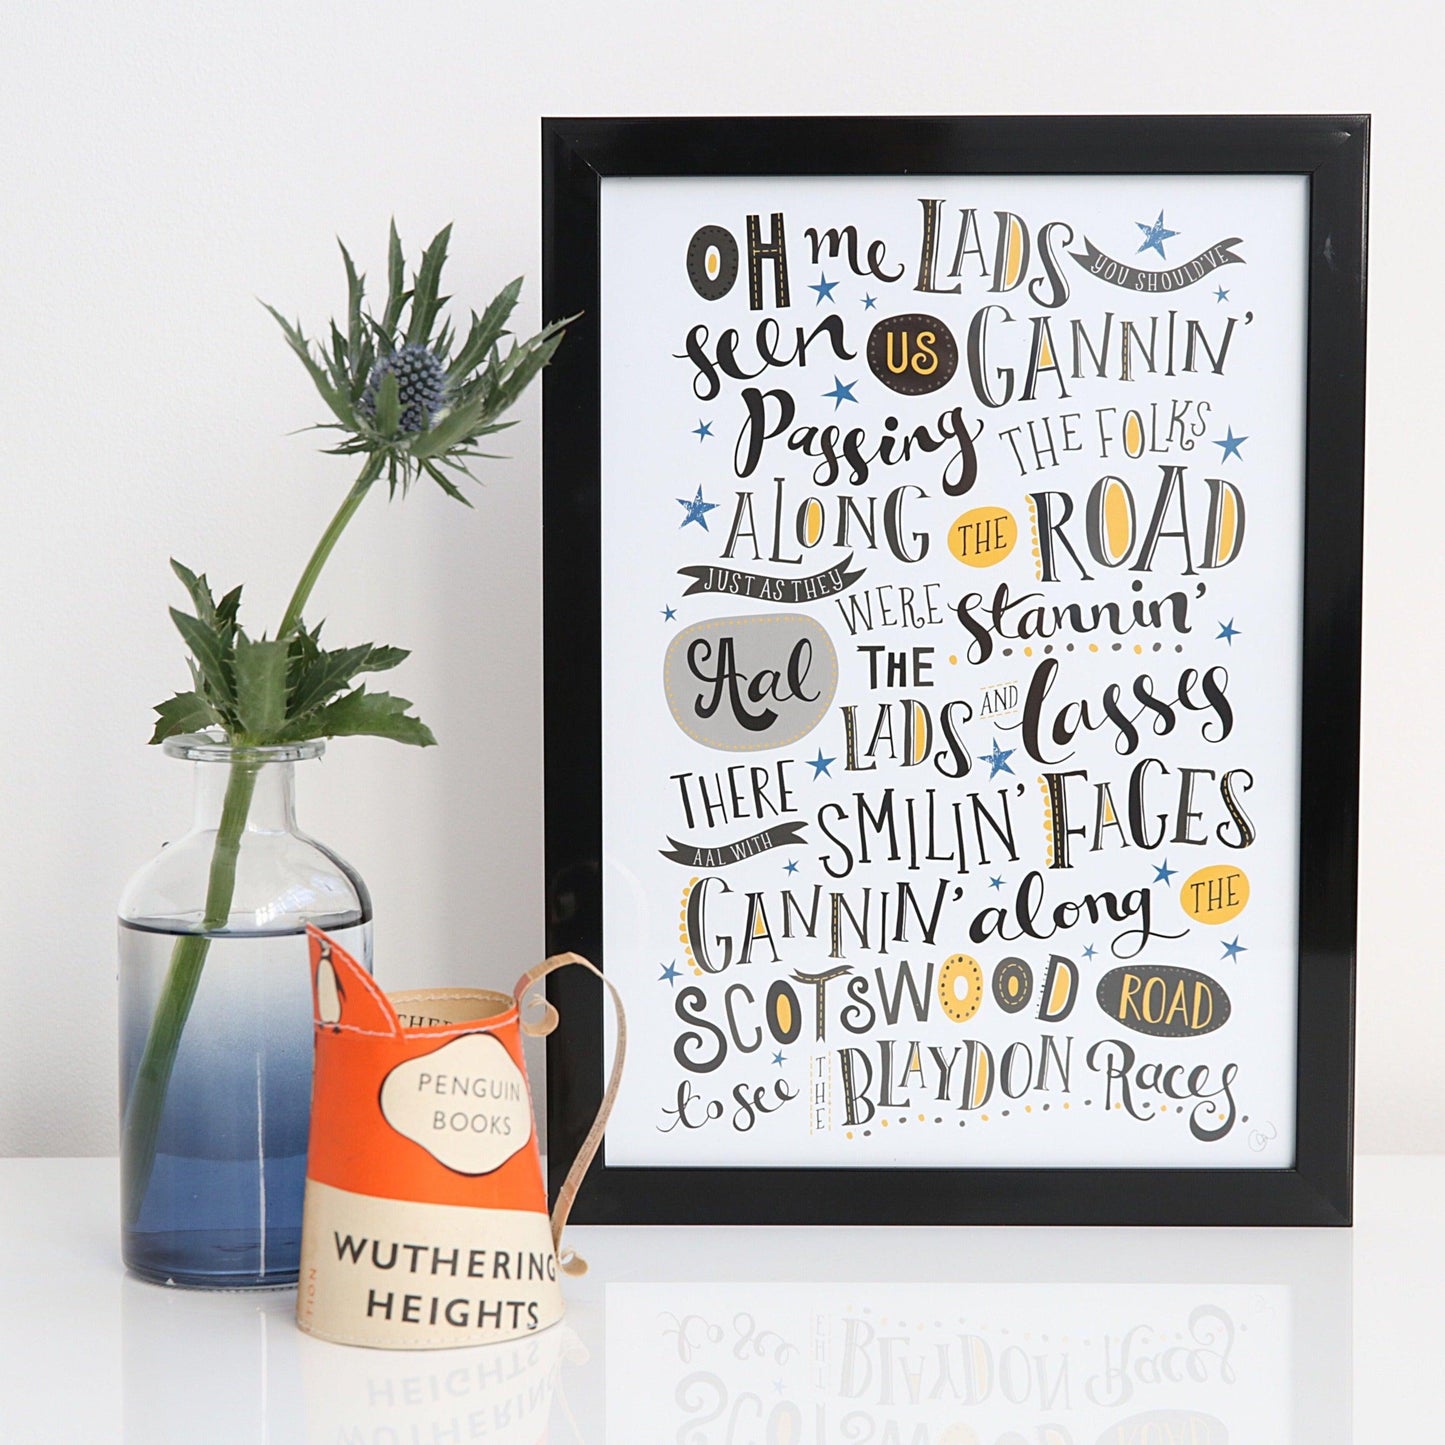 OH me LADS YOU SHOULD'VE
seen US GANNIN'
Passing THE FOLKS
ALONG THE ROAD
JUST AS THEY WERE Stannin'
Aal THE LADS AND Lasses
THERE
AAL WITH SMILIN' FACES
GANNIN' along THE
SCOTSWOOD ROAD
to see THE BLAYDON Races
PENGUIN
BOOKS
WUTHERING
HEIGHTS